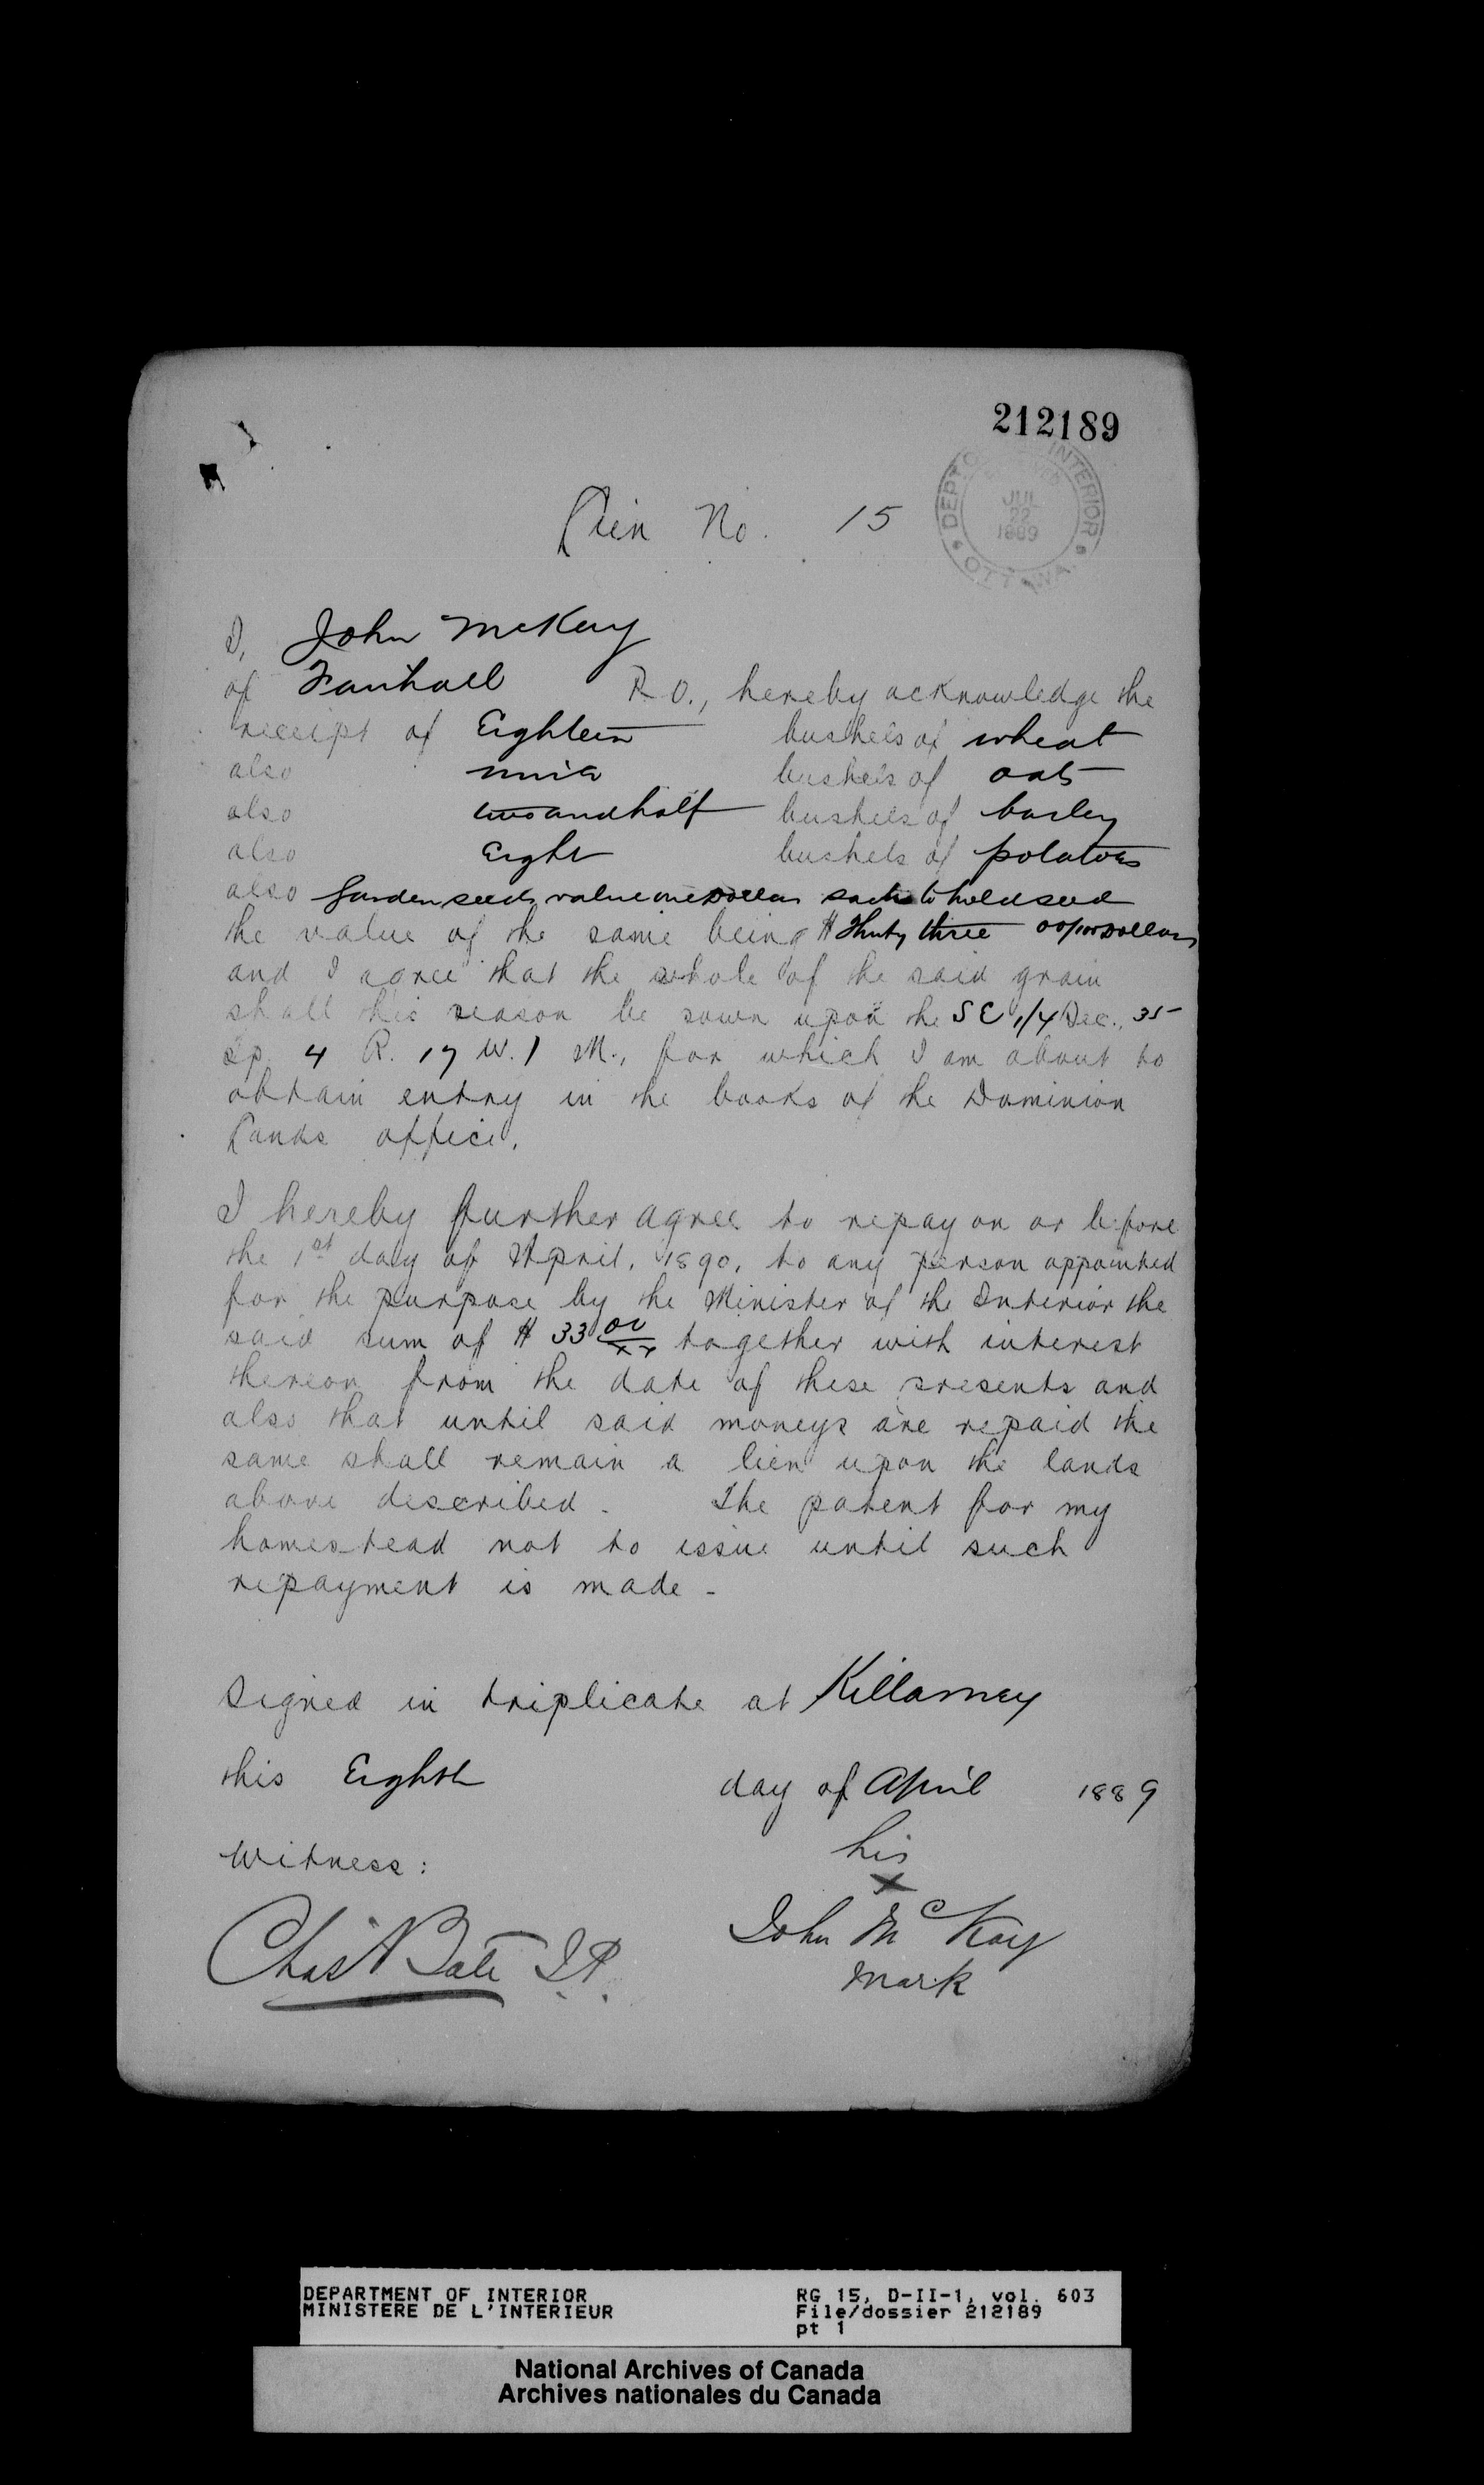 212189
DEPT OF INTERIOR
JUL
22
1889
OTTAWA
Lien No. 15
I, John McKay
of Fairhall P.O., hereby acknowledge the
receipt of Eighteen bushels of wheat
also nine bushels of oats
also two and half bushels of barley
also Eight bushels of potatoes
also Garden seeds value one Dollar sacks to hold seed
the value of the same being $ Thirty three 00/100 Dollars
and I agree that the whole of the said grain
shall this season be sown upon the SE 1/4 Sec., 35
Tp. 4 R. 17 W. 1 M., for which I am about to
obtain entry in the books of the Dominion
Lands office.
I hereby further agree to repay on or before
the 1st day of April, 1890, to any person appointed
for the purpose by the Minister of the Interior the
said sum of $ 33 00/xx together with interest
thereon from the date of these presents and
also that until said moneys are repaid the
same shall remain a lien upon the lands
above described - The patent for my
homestead not to issue until such
repayment is made -
Signed in triplicate at Killarney
this Eighth day of April 1889
Witness: his
x
Chas A Bate J.P. John McKay
mark
DEPARTMENT OF INTERIOR RG 15, D-II-1, vol. 603
MINISTERE DE L'INTERIEUR File/dossier 212189
pt 1
National Archives of Canada
Archives nationales du Canada